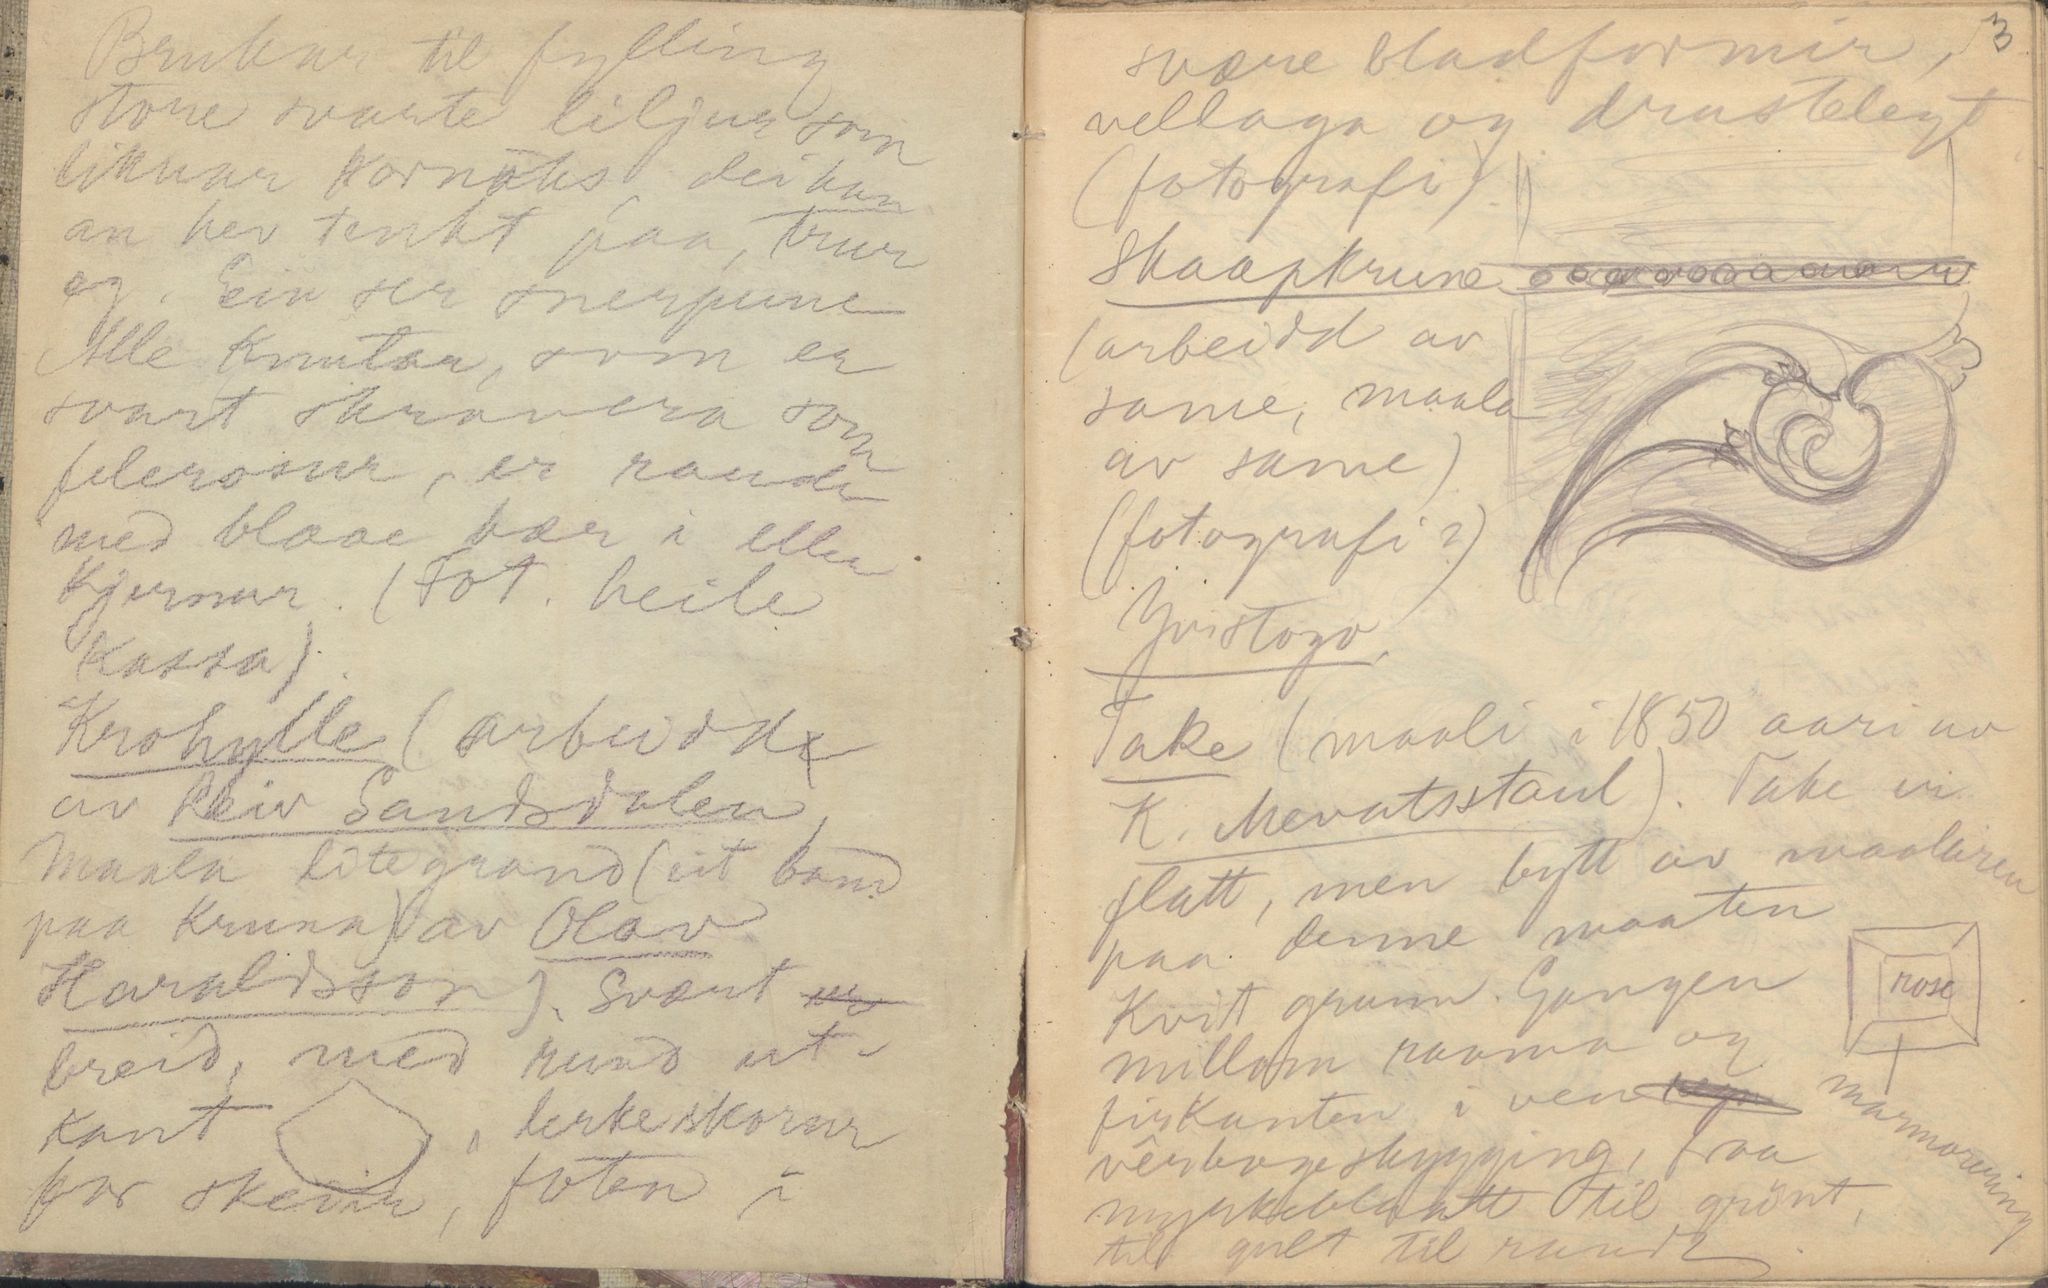 Brukar til fylling
store svarte liljur som
liknar Kornaks, dei han
an hev tenkt paa, trur
eg. Ein ser snerpune
Alle Knutar, som er
svart skravera som
felerosur, er raude
med blaae bær i eller
Kjernur. (Fot. heile
Kassa).
Krohylle (arbeidd
av Leiv Sandsdalen,
Maala litegrand (eit band
paa Kruna) av Olav
Haraldsson). Svært
breid, med rund ut-
kant , lerkeskorur
for skeiir, foten i
3
svære bladformir,
vellaga og drustelegt
(fotografi).
Skaapkrune
(arbeidd av
same, maala
av same)
(fotografi?)
Yvistogo.
Take (maali i 1850 aari av
K. Mevatsstaul). Take er
flatt, men bytt av maalaren
paa denne maaten
Kvit grunn. Gangen
millom raama og
firkanten i ven
vêrbogeskygging, fraa
myrkeblaatt til grönt,
til gult til raudt.
rose
marmorering